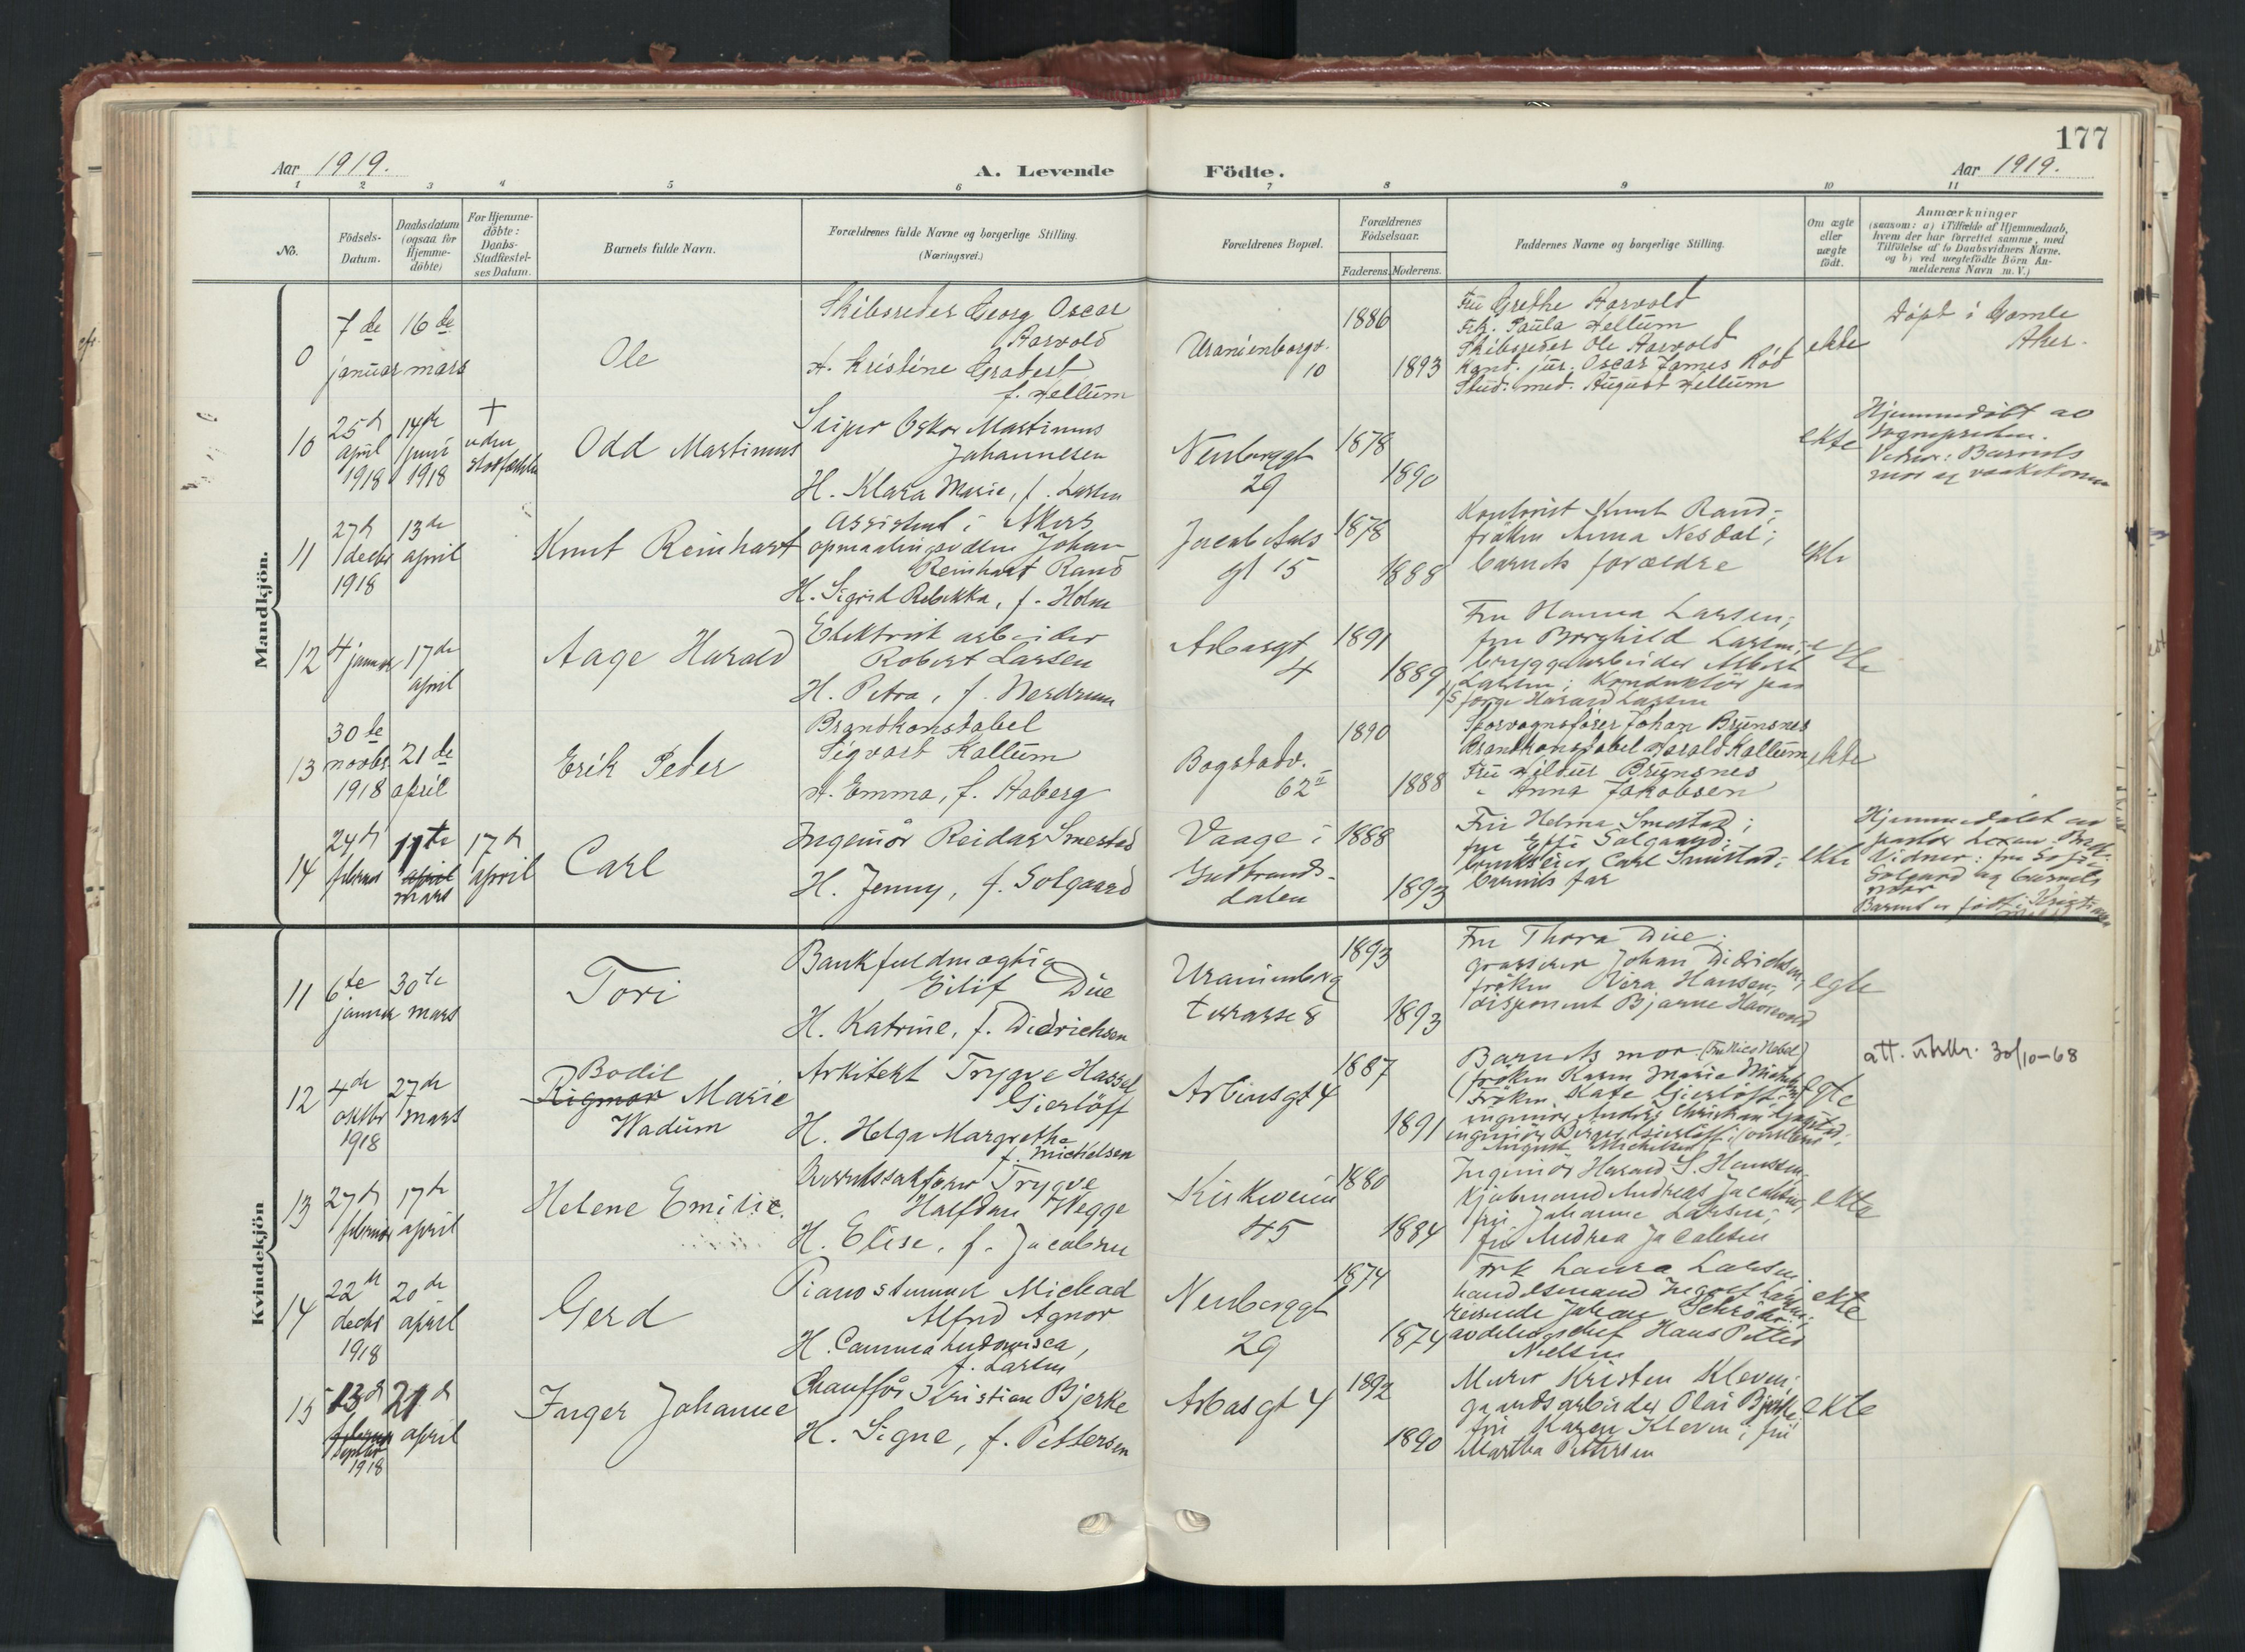 177
Aar 1919.
A. Levende Födte.
Aar 1919.
1 2 3 4 5 6 7 8 9 10 11
No.
Födsels-Datum.
Daabsdatum (ogsaa for Hjemme-döbte)
For Hjemme-döbte: Daabs-Stadfæstel-ses Datum.
Barnets fulde Navn.
Forældrenes fulde Navne og borgerlige Stilling.
(Næringsvei.)
Forældrenes Bopæl.
Forældrenes Födselsaar.
Faderens. Moderens.
Faddernes Navne og borgerlige Stilling.
Om ægte eller uægte födt.
Anmærkninger
(saasom: a) i Tilfælde af Hjemmedaab,
hvem der har forrettet samme, med
Tilföielse af to Daabsvidners Navne.
og b) ved uægtefödte Börn An-
melderens Navn m. V.)
Mandkjön.
7de januar
16de mars
Ole
Skibsreder Georg Oscar
Aarvold
H. Kristine
f. Hellum
Uranienborgv.
10
1886
1893
Fru Grethe Aarvold
Frk. Paula Hellum
Skibsreder Ole Aarvold
Kand. jur. Oscar James Röd
Stud. med. August Hellum
ekte
Döpt i Gamle
Aker.
10
25de april 1918
14de juni 1918
+
Odd Martinus
Oskar Martinus
Johannesen
H. Klara Marie, f. Larsen
29
1878
1890
ekte
Hjemmedöbt av
Barnets
mor og
11
27de decbr 1918
13de april
Knut Reinhart
Assistent i Akers
Johan
Reinhart Rand
H. Sigrid Rebekka, f. Holm
Jacob Aals
gt 15
1878
1888
Kontorist Knut Rand;
fröken Anna Nesdal;
barnets forældre
ekte
12
4 januar
17de april
Aage Harald
Elektrisk arbeider
Robert Larsen
H. Petra, f. Nerdrum
4
1891
1889
Fru Hanna Larsen;
fru Borghild Larsen;
bryggearbeider Albert
Larsen; Konduktör
Harald Larsen
ekte
13
30te novbr 1918
21de april
Erik Peder
Brandkonstabel
Sigvart Kallum
H. Emma, f. Aaberg
Bogstadv.
62 II
1890
1888
Sporvognsförer Johan Brynsnes
Brandkonstabel Harald Kallum
Fru Hildur Brynsnes
" Anna Jakobsen
ekte
14
24de februar
17te april mars
17de april
Carl
Ingeniör Reidar Smestad
H. Jenny, f. Solgaard
Vaage i
Gudbrands-
dalen
1888
1893
Fru Helma Smestad;
fru Solgaard;
Carl Smestad;
barnets far
ekte
Hjemmedöbt av
pastor
Vidner: fru Sofie
Solgaard og barnets
mor
Barnet er födt i Kristiania
Kvindekjön
11
6te januar
30te mars
Tori
Bankfuldmægtig
Eilif Due
H. Katrine, f. Didrichsen
Uranienborg
terrasse 8
1893
1893
Fru Thora Due;
grosserer Johan Didrichsen;
fröken Hansen;
disponent Bjarne
egte
12
4de oktbr 1918
27de mars
Bodil
Rigmor Marie
Wadum
Arkitekt Trygve Hassel
Gierlöff
H. Helga Margrethe
f. Michelsen
Arbinsgt 4
1887
1891
Barnets mor
fröken Karen Marie Michelsen
Fröken Kate Gierlöff;
ingeniör Anders Christian
ingeniör Birger Gierlöff;
August Michelsen
egte
att. utskr. 30/10-68
13
27de februar
17de april
Helene Emilie.
Trygve
Halfdan Wegge
H. Elise, f. Jacobsen
Kirkeveien
45
1880
1884
Ingeniör Harald S. Hanssen;
Kjöbmand Andreas Jacobsen;
fru Johanne Larsen;
fru Andrea Jacobsen
ekte
14
22de decbr 1918
20de april
Gerd
Michael
Alfred Agnor
H. Camma Ludovisca,
f. Larsen
29
1874
1874
Frk Laura Larsen
handelsmand Ingolf Larsen;
reisende Johan Schröder;
avdelingschef Hans Petter
Nielsen
ekte
15
13de februar septbr 1918
21de april
Inger Johanne
Chaufför Kristian Bjerke
H. Signe, f. Pettersen
4
1892
1890
Murer Kristen Kleven;
gaardsarbeider Olai Bjerke;
fru Karen Kleven; fru
Martha Pettersen
ekte